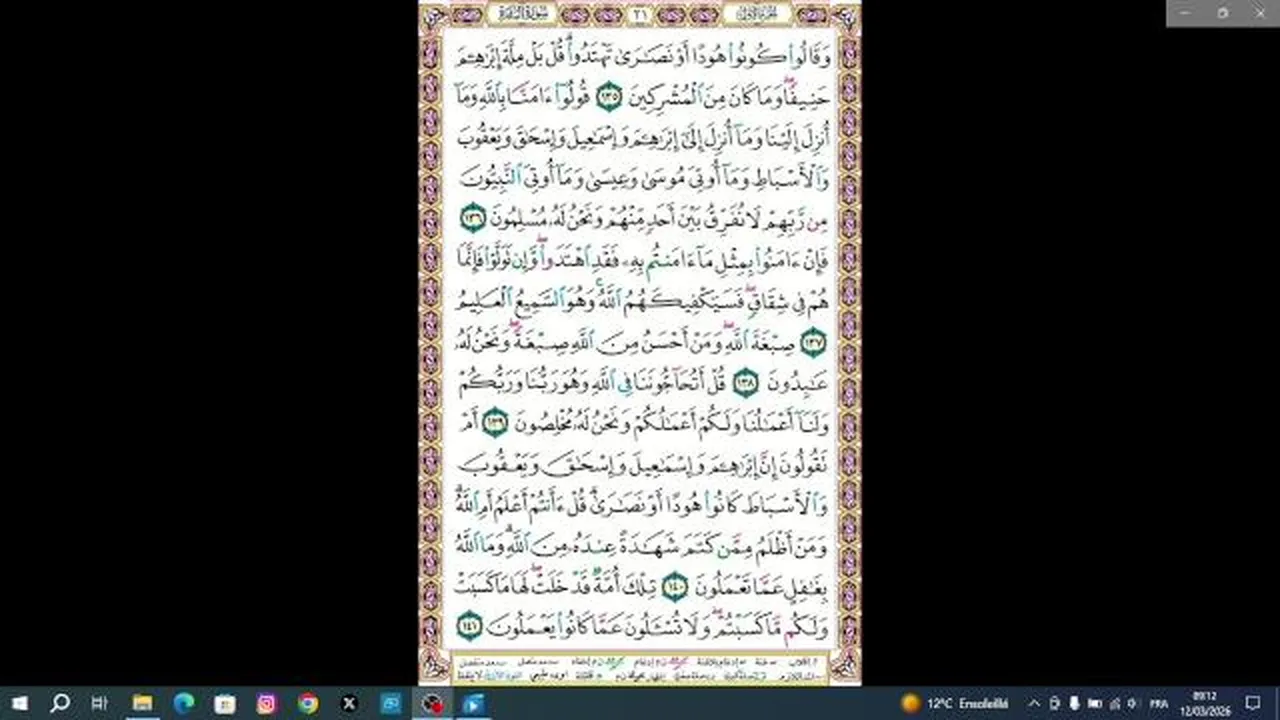 الجزء الأول ٢١ سورة البقرة
وَقَالُوا۟ كُونُوا۟ هُودًا أَوْ نَصَـٰرَىٰ تَهْتَدُوا۟ ۗ قُلْ بَلْ مِلَّةَ إِبْرَٰهِـۧمَ
حَنِيفًا ۖ وَمَا كَانَ مِنَ ٱلْمُشْرِكِينَ ١٣٥ قُولُوٓا۟ ءَامَنَّا بِٱللَّهِ وَمَآ
أُنزِلَ إِلَيْنَا وَمَآ أُنزِلَ إِلَىٰٓ إِبْرَٰهِـۧمَ وَإِسْمَـٰعِيلَ وَإِسْحَـٰقَ وَيَعْقُوبَ
وَٱلْأَسْبَاطِ وَمَآ أُوتِىَ مُوسَىٰ وَعِيسَىٰ وَمَآ أُوتِىَ ٱلنَّبِيُّونَ
مِن رَّبِّهِمْ لَا نُفَرِّقُ بَيْنَ أَحَدٍ مِّنْهُمْ وَنَحْنُ لَهُۥ مُسْلِمُونَ ١٣٦
فَإِنْ ءَامَنُوا۟ بِمِثْلِ مَآ ءَامَنتُم بِهِۦ فَقَدِ ٱهْتَدَوا۟ ۖ وَّإِن تَوَلَّوْا۟ فَإِنَّمَا
هُمْ فِى شِقَاقٍ ۖ فَسَيَكْفِيكَهُمُ ٱللَّهُ ۚ وَهُوَ ٱلسَّمِيعُ ٱلْعَلِيمُ
١٣٧ صِبْغَةَ ٱللَّهِ ۖ وَمَنْ أَحْسَنُ مِنَ ٱللَّهِ صِبْغَةً ۖ وَنَحْنُ لَهُۥ
عَـٰبِدُونَ ١٣٨ قُلْ أَتُحَآجُّونَنَا فِى ٱللَّهِ وَهُوَ رَبُّنَا وَرَبُّكُمْ
وَلَنَآ أَعْمَـٰلُنَا وَلَكُمْ أَعْمَـٰلُكُمْ وَنَحْنُ لَهُۥ مُخْلِصُونَ ١٣٩ أَمْ
تَقُولُونَ إِنَّ إِبْرَٰهِـۧمَ وَإِسْمَـٰعِيلَ وَإِسْحَـٰقَ وَيَعْقُوبَ
وَٱلْأَسْبَاطَ كَانُوا۟ هُودًا أَوْ نَصَـٰرَىٰ ۗ قُلْ ءَأَنتُمْ أَعْلَمُ أَمِ ٱللَّهُ ۗ
وَمَنْ أَظْلَمُ مِمَّن كَتَمَ شَهَـٰدَةً عِندَهُۥ مِنَ ٱللَّهِ ۗ وَمَا ٱللَّهُ
بِغَـٰفِلٍ عَمَّا تَعْمَلُونَ ١٤٠ تِلْكَ أُمَّةٌ قَدْ خَلَتْ ۖ لَهَا مَا كَسَبَتْ
وَلَكُم مَّا كَسَبْتُمْ ۖ وَلَا تُسْـَٔلُونَ عَمَّا كَانُوا۟ يَعْمَلُونَ ١٤١
12°C Ensoleillé FRA 09:12
12/03/2026